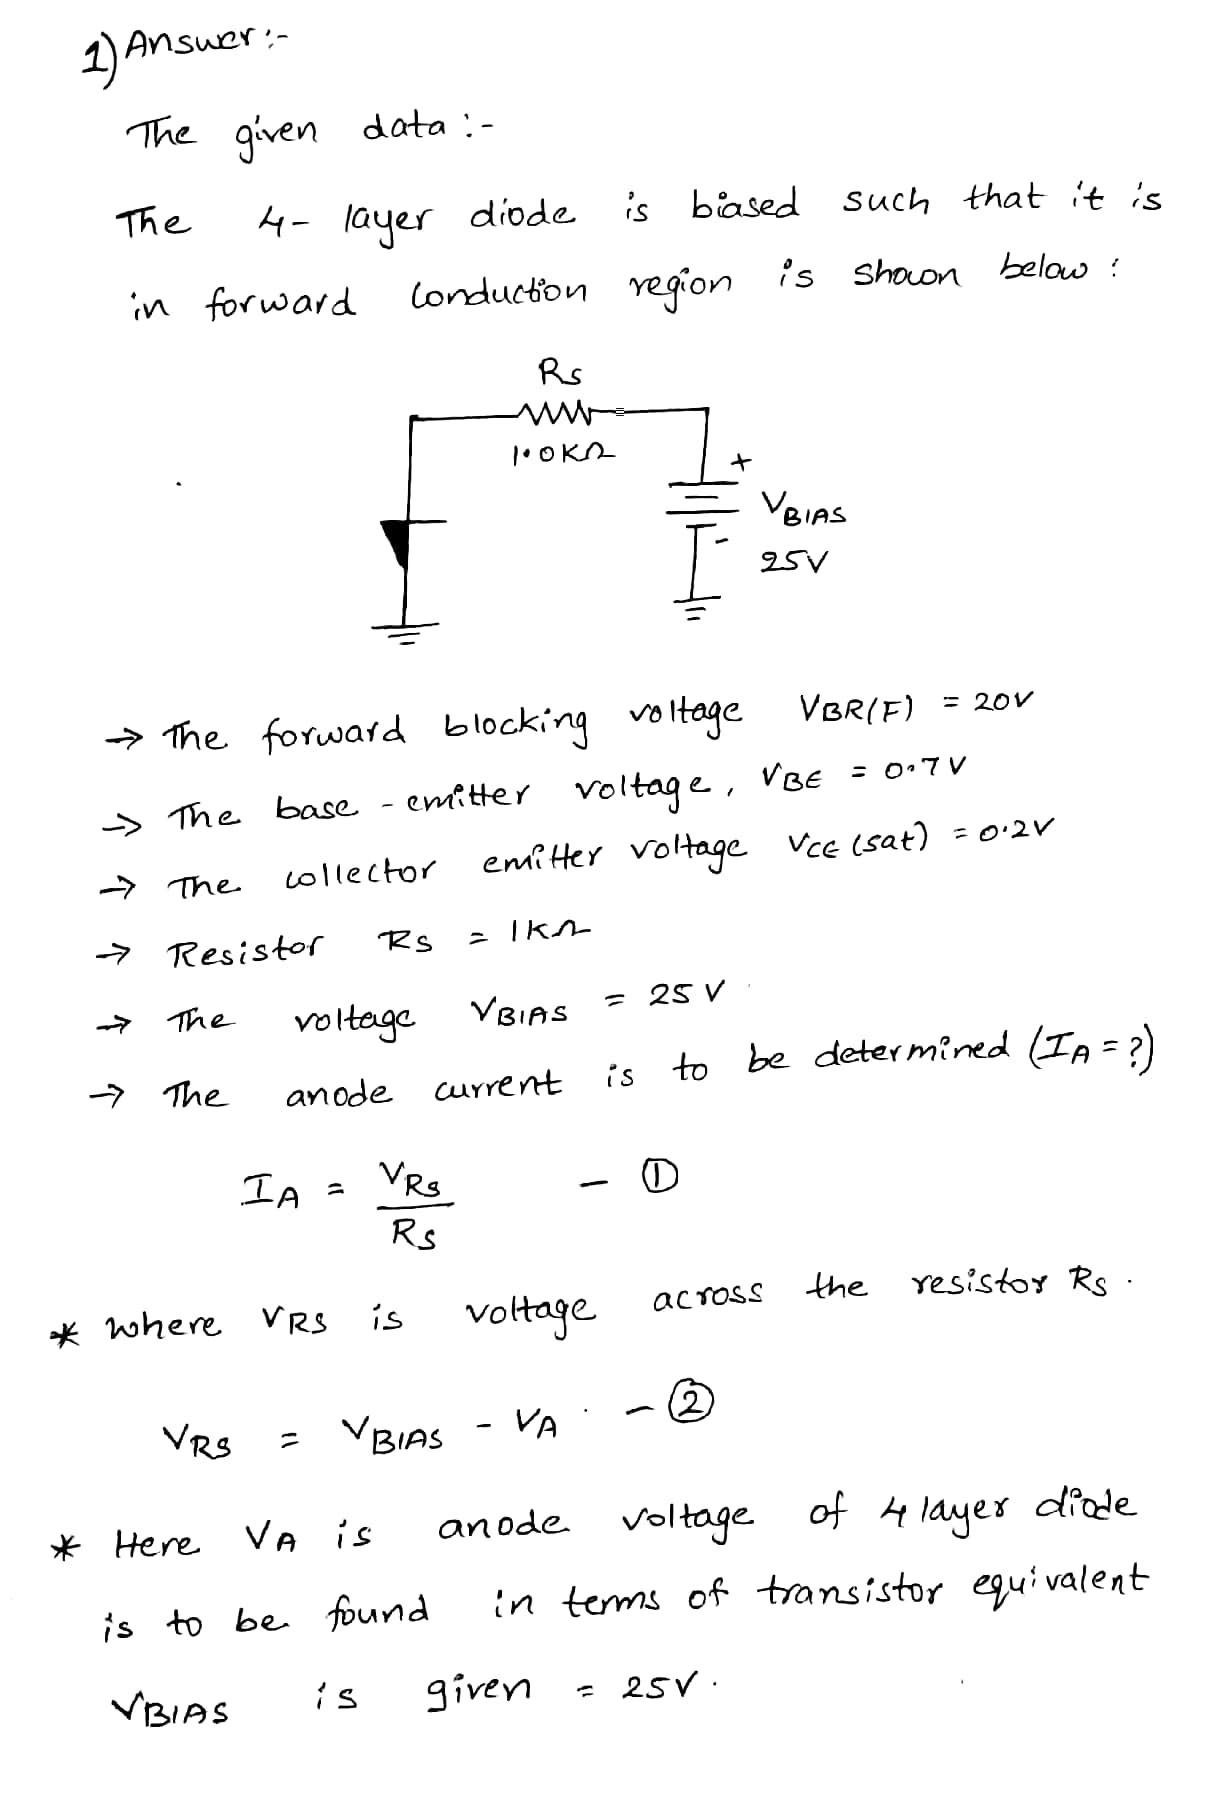 1) Answer :-
The given data :-
The 4- layer diode is biased such that it is
in forward conduction region is shown below :
Rs
1.0KΩ
+
VBIAS
-
25V
→ The forward blocking voltage VBR(F) = 20V
→ The base - emitter voltage, VBE = 0.7V
→ The collector emitter voltage VCE (sat) = 0.2V
→ Resistor Rs = 1KΩ
→ The voltage VBIAS = 25 V
→ The anode current is to be determined (IA = ?)
IA = VRs / Rs - ①
* where VRS is voltage across the resistor Rs .
VRS = VBIAS - VA . - ②
* Here VA is anode voltage of 4 layer diode
is to be found in terms of transistor equivalent
VBIAS is given = 25V .